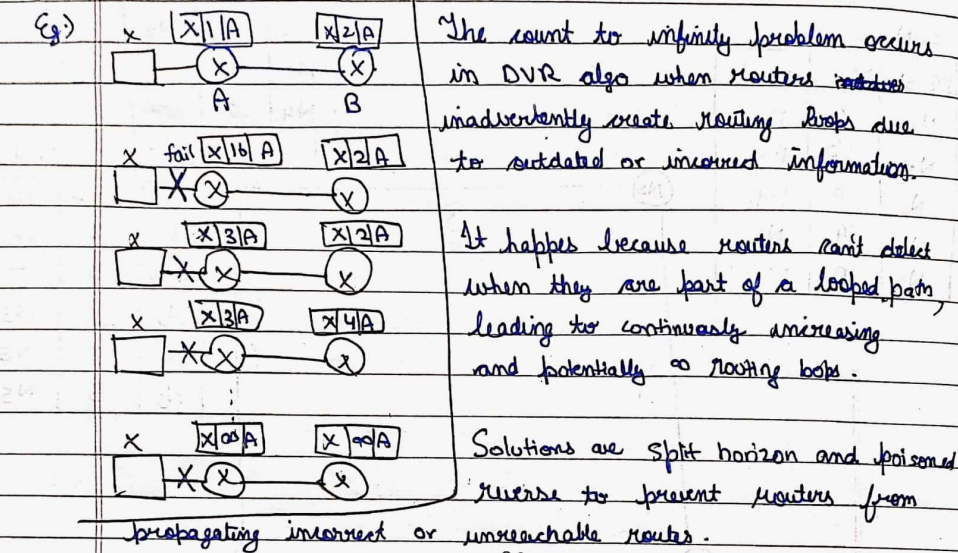 Eg:)
x X|1|A X|2|A
X X
A B
x fail X|16|A X|2|A
X X
x X|3|A X|2|A
X X
x X|3|A X|4|A
X X
x X|∞|A X|∞|A
X X
The count to infinity problem occurs
in DVR also when routers
inadvertently create routing loops due
to outdated or incorrect information.
It happes because routers can't detect
when they are part of a looped path,
leading to continuosly increasing
and potentially ∞ routing loops.
Solutions are split horizon and poisoned
reverse to prevent routers from
propagating incorrect or unreachable routes.